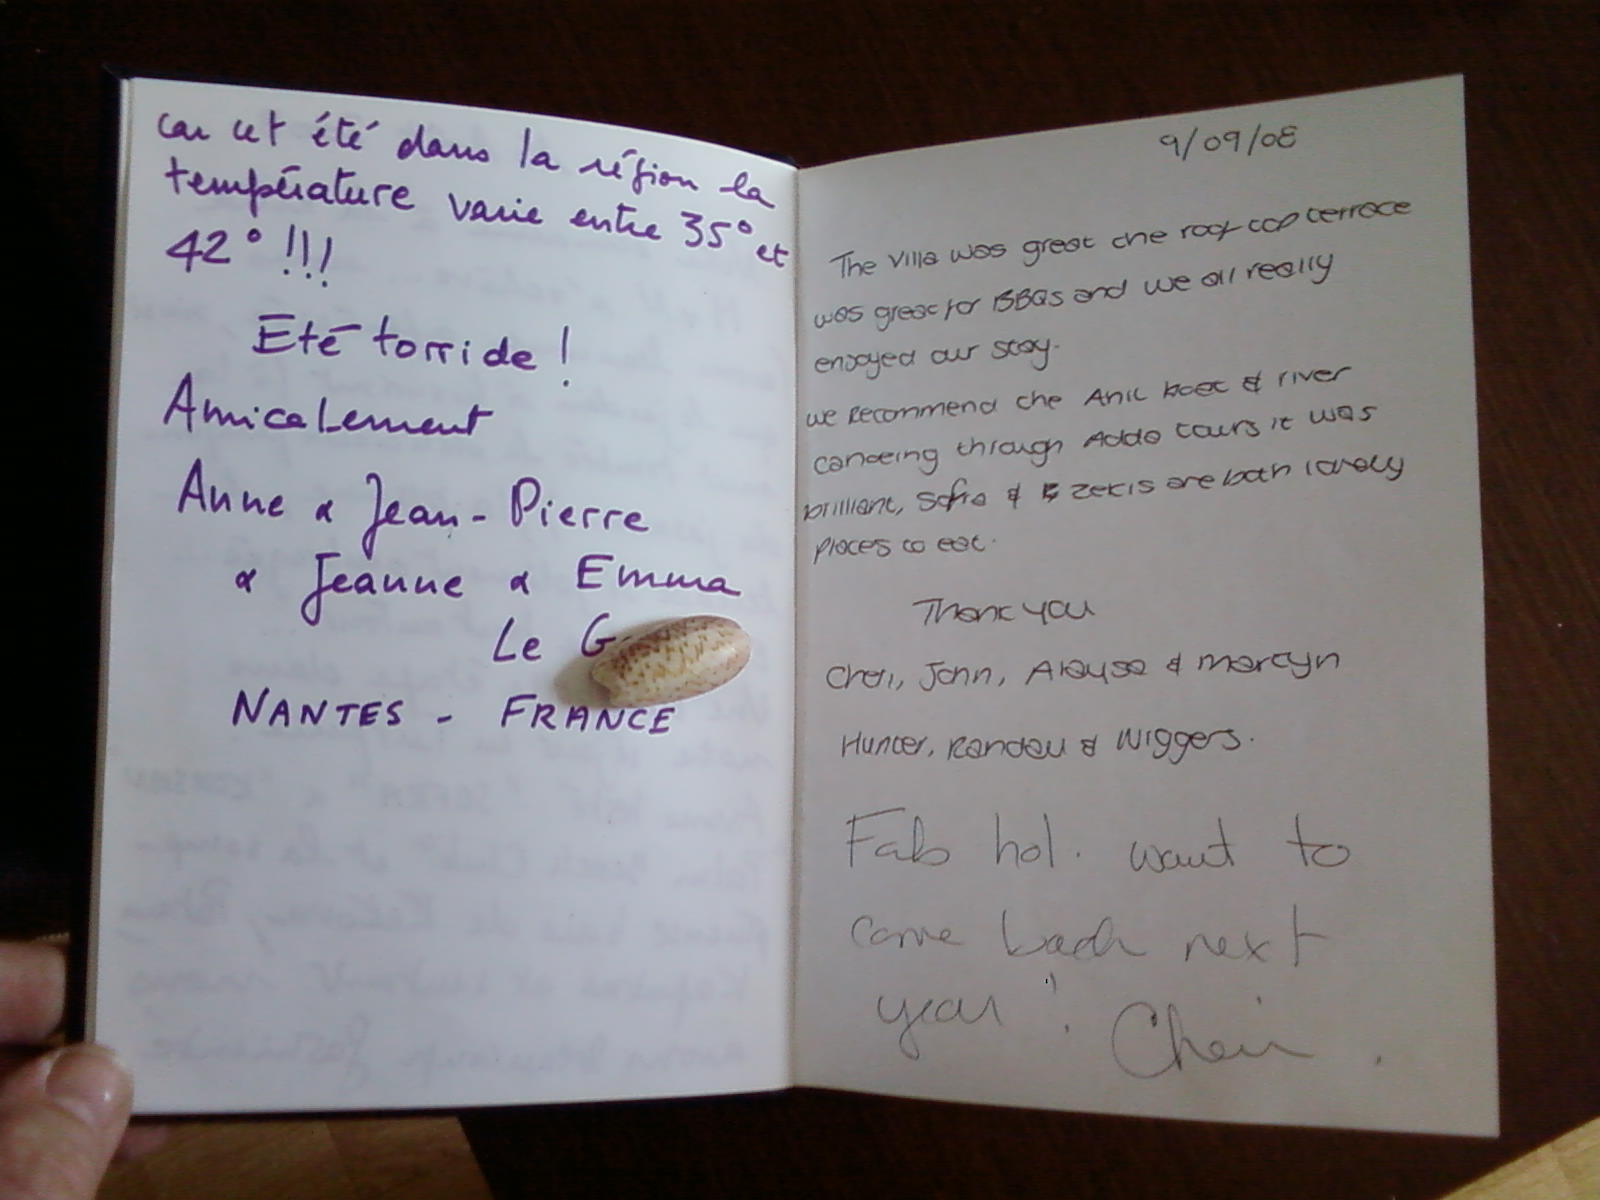 car cet été dans la région la
température varie entre 35° et
42° !!!
Eté torride !
Amicalement
Anne & Jean-Pierre
& Jeanne & Emma
Le G
NANTES - FRANCE
9/09/08
The Villa was great the roof top terrace
was great for BBQs and we all really
enjoyed our stay.
we Recommend the Anil boat & river
canoeing through Addo tours it was
brilliant, Sofra & Zekis are both lovely
places to eat.
Thank you
John, & martyn
Hunter, Randau & Wiggers.
Fab hol. want to
come back next
year !